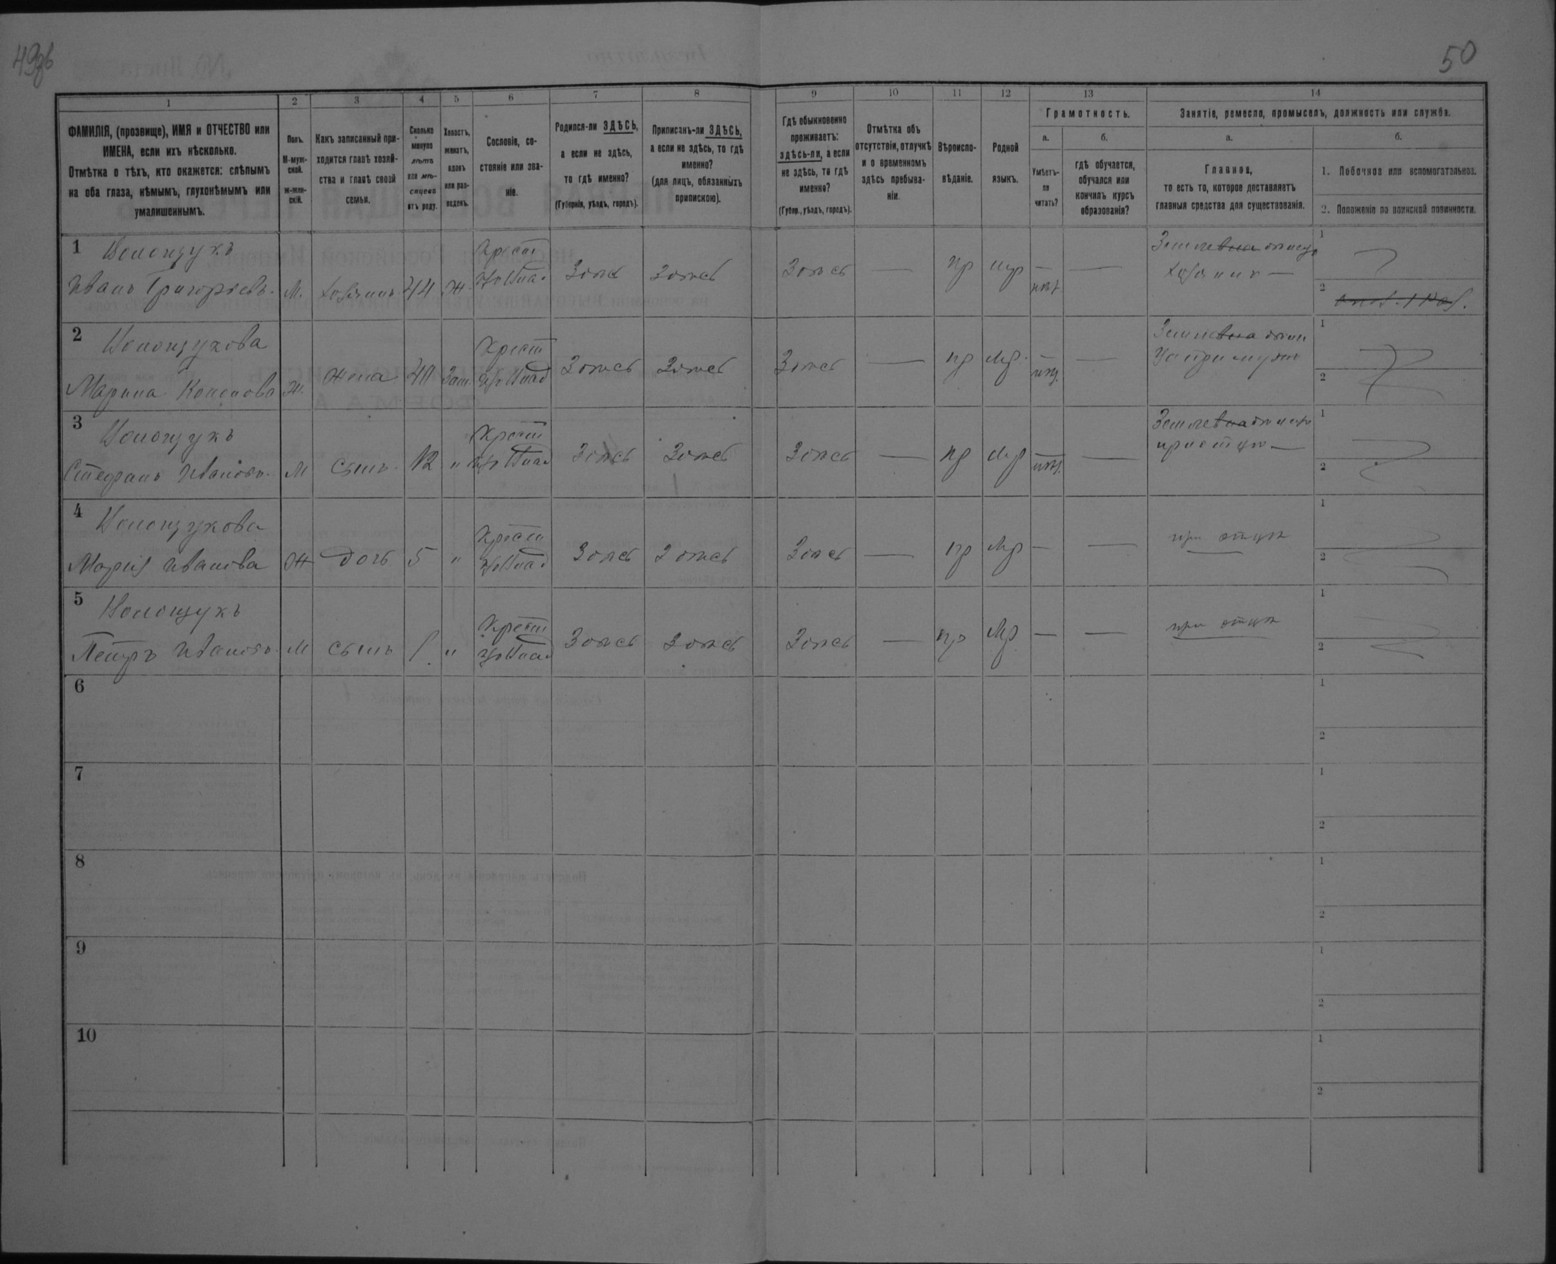 49об
50
1 2 3 4 5 6 7 8 9 10 11 12 13 14
ФАМИЛІЯ, (прозвище), ИМЯ и ОТЧЕСТВО или
ИМЕНА, если ихъ нѣсколько.
Отмѣтка о тѣхъ, кто окажется: слѣпымъ
на оба глаза, нѣмымъ, глухонѣмымъ или
умалишеннымъ.
Полъ.
М-муж-
ской.
ж-жен-
скій.
Какъ записанный при-
ходится главѣ хозяй-
ства и главѣ своей
семьи.
Сколько
минуло
лѣтъ
или мѣ-
сяцевъ
отъ роду.
Холостъ,
женатъ,
вдовъ
или раз-
веденъ.
Сословіе, со-
стояніе или зва-
ніе.
Родился-ли ЗДѢСЬ,
а если не здѣсь,
то гдѣ именно?
(Губернія, уѣздъ, городъ).
Приписанъ-ли ЗДѢСЬ,
а если не здѣсь, то гдѣ
именно?
(для лицъ, обязанныхъ
припискою).
Гдѣ обыкновенно
проживаетъ:
здѣсь-ли, а если
не здѣсь, то гдѣ
именно?
(Губер., уѣздъ, городъ).
Отмѣтка объ
отсутствіи, отлучкѣ
и о временномъ
здѣсь пребыва-
ніи.
Вѣроиспо-
вѣданіе.
Родной
языкъ.
Грамотность.
а.
Умѣетъ-
ли
читать?
б.
гдѣ обучается,
обучался или
кончилъ курсъ
образованія?
Занятіе, ремесло, промыселъ, должность или служба.
а.
Главное,
то есть то, которое доставляетъ
главныя средства для существованія.
б.
1. Побочное или вспомогательное.
2. Положеніе по воинской повинности.
1
Иванъ Григорьевъ М. хозяинъ 44 ж. Крест Здѣсь Здѣсь Здѣсь — пр — нѣт —
хозяинъ —
1
2
2
Марина ж. жена 40 Зам. Крест Здѣсь Здѣсь Здѣсь — пр Мр. —
1
2
3
Стефанъ Ивановъ М сынъ 12 " Крест Здѣсь Здѣсь Здѣсь — пр Мр —
1
2
4
Марія Иванова Ж дочь 5 " Крест Здѣсь Здѣсь Здѣсь — пр Мр — — при отцѣ
1
2
5
Петръ Ивановъ М сынъ 1 " Крест Здѣсь Здѣсь Здѣсь — пр Мр — — при отцѣ
1
2
6
1
2
7
1
2
8
1
2
9
1
2
10
1
2